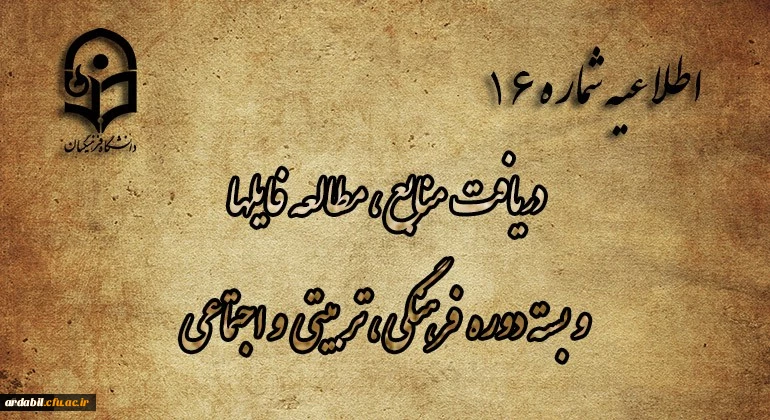 اطلاعیه شماره ۱۶
دانشگاه فرهنگیان
دریافت منابع ، مطالعه فایلها
و بسته دوره فرهنگی، تربیتی و اجتماعی
ardabil.cfu.ac.ir